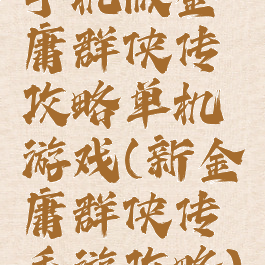 手机版金
庸群侠传
攻略单机
游戏(新金
庸群侠传
手游攻略)